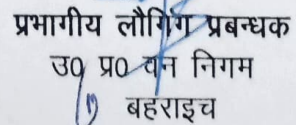 प्रभागीय लौगिंग प्रबन्धक
उ0 प्र0 वन निगम
बहराइच